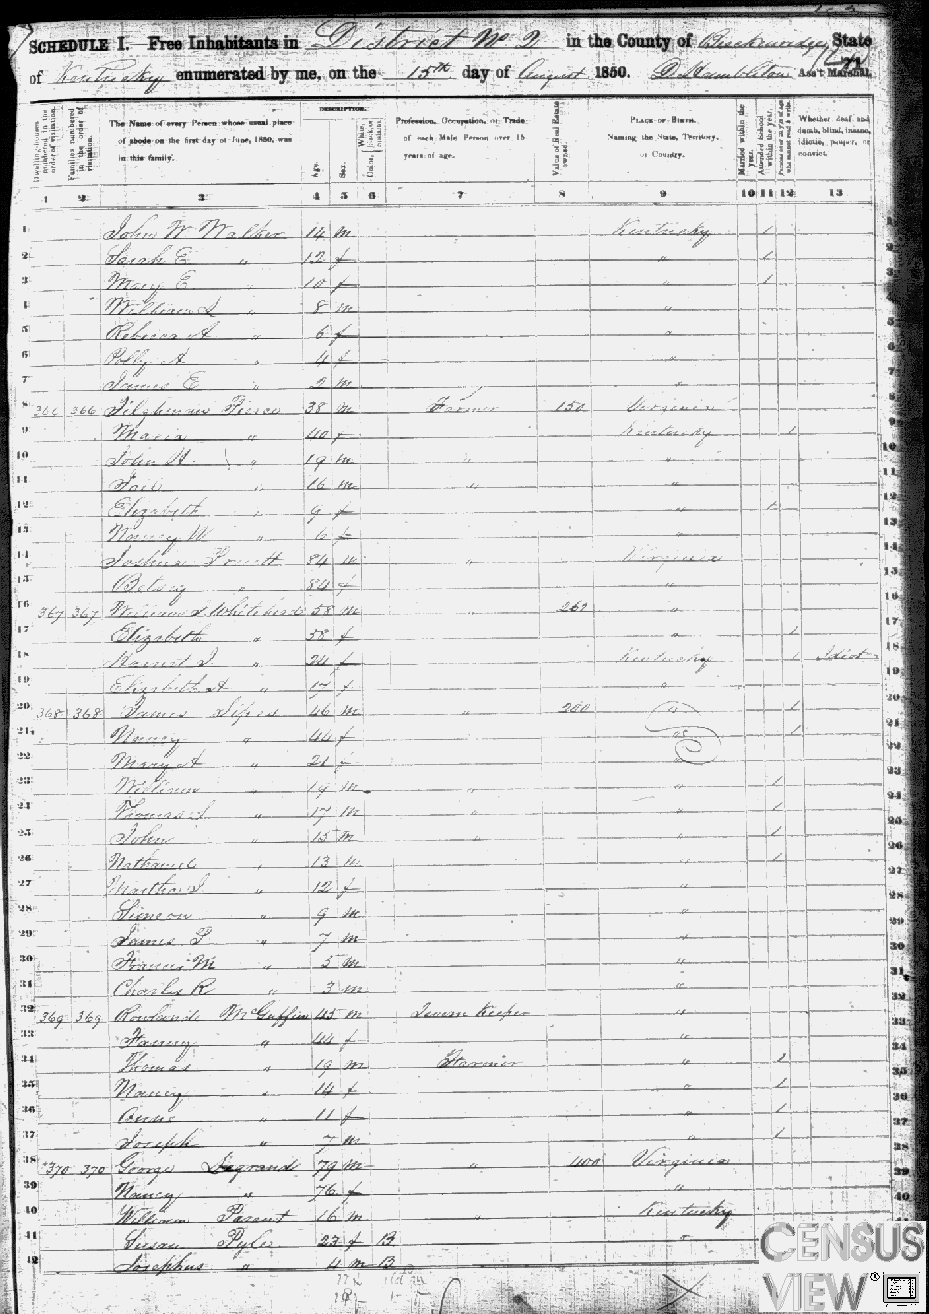 SCHEDULE I. Free Inhabitants in District No 2 in the County of Breckinridge State
of Kentucky enumerated by me, on the 15th day of August 1850. D. Hambleton Ass't Marshal.
Dwelling-houses numbered in the order of visitation.
Families numbered in the order of visitation.
The Name of every Person whose usual place of abode on the first day of June, 1850, was in this family.
DESCRIPTION.
Age.
Sex.
White, black, or mulatto.
Profession, Occupation, or Trade of each Male Person over 15 years of age.
Value of Real Estate owned.
PLACE OF BIRTH. Naming the State, Territory, or Country.
Married within the year.
Attended School within the year.
Persons over 20 y'rs of age who cannot read & write.
Whether deaf and dumb, blind, insane, idiotic, pauper, or convict.
1 2 3 4 5 6 7 8 9 10 11 12 13
1 John W Walker 14 m Kentucky 1
2 Sarah E " 12 f " 1
3 Mary E " 10 f " 1
4 William L " 8 m "
5 Rebecca A " 6 f "
6 Polly A " 4 f "
7 James E " 2 m "
8 366 366 Tilghman Pierce 38 m Farmer 150 Virginia
9 Maria " 40 f Kentucky 1
10 John H " 19 m " "
11 " 16 m " "
12 Elizabeth " 9 f " 1
13 Nancy W " 6 f "
14 Joshua 84 m " Virginia
15 Betsey " 84 f "
16 367 367 William L Whitehead 58 m 250 "
17 Elizabeth " 58 f " 1
18 Harriet J. " 24 f Kentucky 1 Idiot
19 Elizabeth A " 17 f "
20 368 368 James Sipes 46 m " 200 " 1
21 Nancy " 44 f " 1
22 Mary A " 21 f "
23 William " 19 m " " 1
24 Thomas J " 17 m " " 1
25 John " 15 m " " 1
26 Nathaniel " 13 m " 1
27 Martha J " 12 f "
28 Simeon " 9 m "
29 James P " 7 m "
30 Francis M " 5 m "
31 Charles R " 3 m "
32 369 369 Rowland McGuffin 45 m Tavern Keeper "
Fanny " 44 f "
34 Thomas " 19 m Farmer " 1
35 Nancy " 14 f " 1
36 Anne " 11 f " 1
37 Joseph " 7 m " 1
38 370 370 George Legrand 79 m " 400 Virginia
39 Nancy " 76 f "
40 William Parent 16 m " Kentucky
41 Susan Pyles 23 f B "
42 Josephus " 4 m B
CENSUS
VIEW